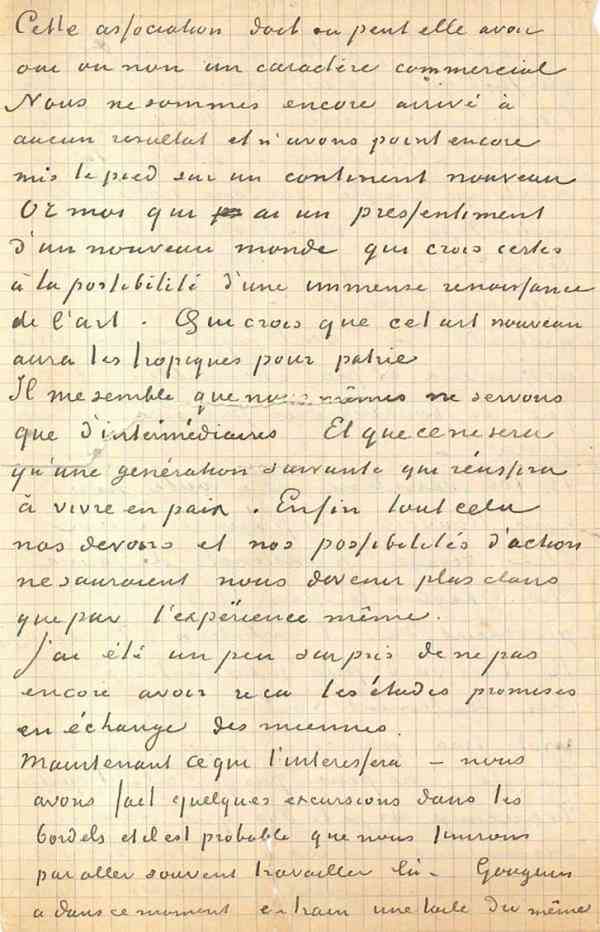 Cette association doit ou peut elle avoir
oui ou non un caractère commercial
Nous ne sommes encore arrivé à
aucun resultat et n'avons point encore
mis le pied sur un continent nouveau
Or moi qui ai un pressentiment
d'un nouveau monde qui crois certes
à la possibilité d'une immense renaissance
de l'art. Qui crois que cet art nouveau
aura les tropiques pour patrie
Il me semble que nous mêmes ne servons
que d'intermédiaires Et que ce ne sera
qu'une génération suivante qui réussira
à vivre en paix. Enfin tout cela
nos devoirs et nos possibilités d'action
ne sauraient nous devenir plus clairs
que par l'expérience même.
j'ai été un peu surpris de ne pas
encore avoir recu les études promises
en échange des miennes.
Maintenant ce qui t'interessera – nous
avons fait quelques excursions dans les
bordels et il est probable que nous finirons
par aller souvent travailler là – Gauguin
a dans ce moment en train une toile du même